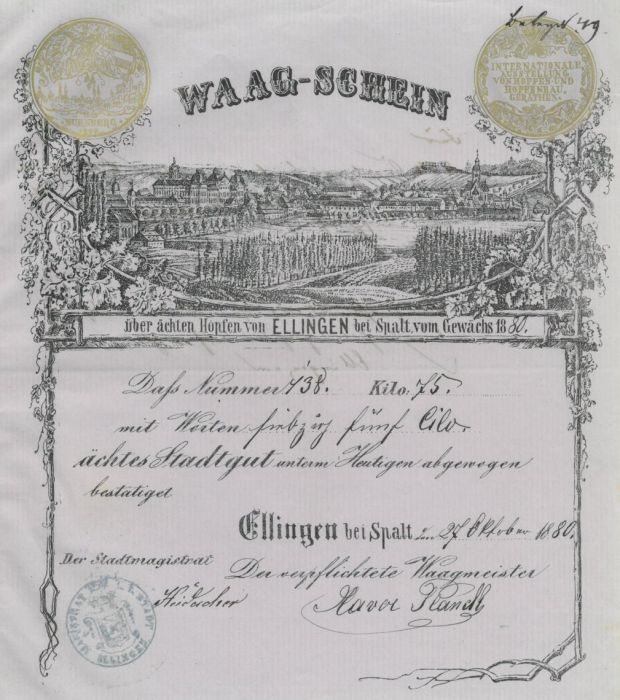 Beleg N. 49.
NÜRNBERG
INTERNATIONALE
AUSSTELLUNG
VON HOPFEN UND
HOPFENBAU-
GERÄTHEN.
WAAG-SCHEIN
über ächten Hopfen von ELLINGEN bei Spalt vom Gewächs 1880.
Daß Nummer 138. Kilo: 75.
mit Worten siebzig fünf Cilo
ächtes Stadtgut unterm Heutigen abgewogen
bestätiget
Ellingen bei Spalt den 27 Oktober 1880.
Der Stadtmagistrat
Der verpflichtete Waagmeister
Xaver
MAGISTRAT DER STADT